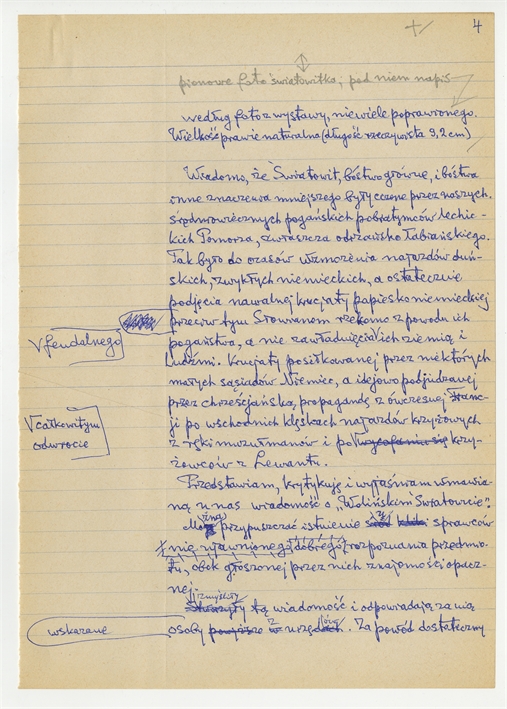 4
pionowe foto światowitka, pod niem napis
według foto z wystawy, niewiele poprawionego.
Wielkość prawie naturalna (długość rzeczywista 9,2 cm)
Wiadomo, że Światowit, bóstwo główne, i bóstwa
inne znaczenia mniejszego były czczone przez naszych
średniowiecznych pogańskich pobratymców lechic-
kich Pomorza, zwłaszcza odrzańsko łabiańskiego.
Tak było do czasów wzmożenia najazdów duń-
skich, zwykłych niemieckich, a ostatecznie
podjęcia nawalnej krucjaty papiesko niemieckiej
przeciw tym Słowianom rzekomo z powodu ich
V feudalnego
pogaństwa, a nie zawładnięcia ich ziemią i
ludźmi. Krucjaty posiłkowanej przez niektórych
małych sąsiadów Niemiec, a idejowo podjudzanej
przez chrześcjańską propagandę z ówczesnej Franc-
ji po wschodnich klęskach najazdów krzyżowych
V całkowitym
odwrocie
z ręki muzułmanów i po wycofaniu się krzy-
żowców z Lewantu.
Przedstawiam, krytykuję i wyjaśniam wmawia-
ną u nas wiadomość o „Wolińskim Światowicie".
Można przypuszczać istnienie sprawców
nie ujawnionego dobrego rozpoznania przedmio-
tu, obok głoszonej przez nich znajomości opacz-
nej.
zmyśliły
tą wiadomość i odpowiadają za nią
wskazane
osoby powyższe z urzędów. Za powód dostateczny